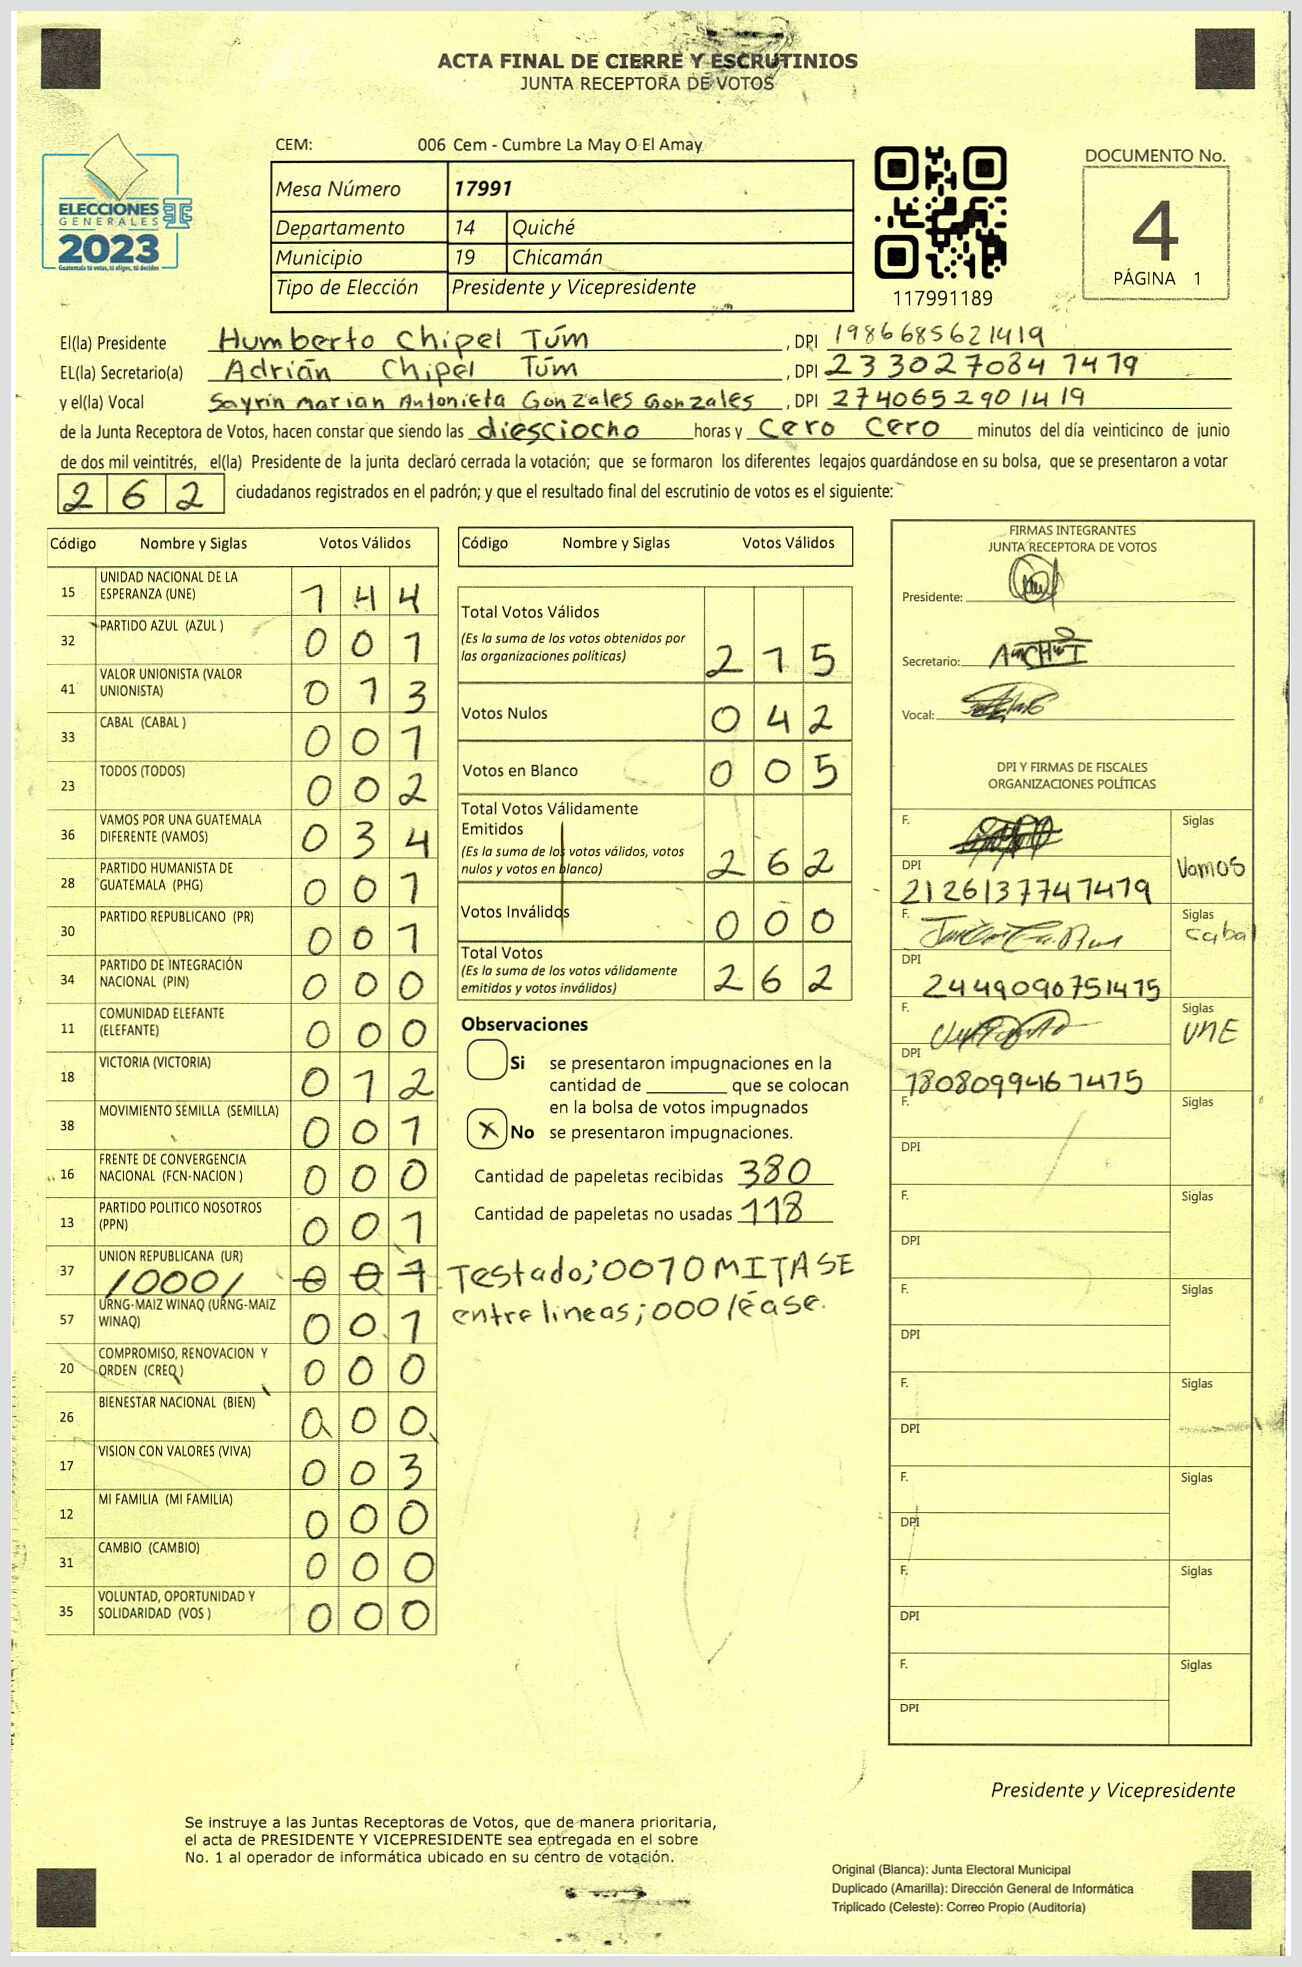 ACTA FINAL DE CIERRE Y ESCRUTINIOS
JUNTA RECEPTORA DE VOTOS
CEM: 006 Cem - Cumbre La May O El Amay
ELECCIONES
GENERALES
2023
Guatemala tú votas, tú eliges, tú decides
Mesa Número 17991
Departamento 14 Quiché
Municipio 19 Chicamán
Tipo de Elección Presidente y Vicepresidente
117991189
DOCUMENTO No.
4
PÁGINA 1
El(la) Presidente Humberto Chipel Túm, DPI 1986685621419
EL(la) Secretario(a) Adrián Chipel Túm, DPI 2330270847479
y el(la) Vocal Sayrin Marian Antonieta Gonzales Gonzales, DPI 2740652901419
de la Junta Receptora de Votos, hacen constar que siendo las diesciocho horas y cero cero minutos del día veinticinco de junio
de dos mil veintitrés, el(la) Presidente de la junta declaró cerrada la votación; que se formaron los diferentes legajos guardándose en su bolsa, que se presentaron a votar
262 ciudadanos registrados en el padrón; y que el resultado final del escrutinio de votos es el siguiente:
Código Nombre y Siglas Votos Válidos
15 UNIDAD NACIONAL DE LA ESPERANZA (UNE) 144
32 PARTIDO AZUL (AZUL ) 001
41 VALOR UNIONISTA (VALOR UNIONISTA) 013
33 CABAL (CABAL ) 001
23 TODOS (TODOS) 002
36 VAMOS POR UNA GUATEMALA DIFERENTE (VAMOS) 034
28 PARTIDO HUMANISTA DE GUATEMALA (PHG) 001
30 PARTIDO REPUBLICANO (PR) 001
34 PARTIDO DE INTEGRACIÓN NACIONAL (PIN) 000
11 COMUNIDAD ELEFANTE (ELEFANTE) 000
18 VICTORIA (VICTORIA) 012
38 MOVIMIENTO SEMILLA (SEMILLA) 001
16 FRENTE DE CONVERGENCIA NACIONAL (FCN-NACION ) 000
13 PARTIDO POLITICO NOSOTROS (PPN) 001
37 UNION REPUBLICANA (UR) /000/ 001
57 URNG-MAIZ WINAQ (URNG-MAIZ WINAQ) 001
20 COMPROMISO, RENOVACION Y ORDEN (CREO ) 000
26 BIENESTAR NACIONAL (BIEN) 000
17 VISION CON VALORES (VIVA) 003
12 MI FAMILIA (MI FAMILIA) 000
31 CAMBIO (CAMBIO) 000
35 VOLUNTAD, OPORTUNIDAD Y SOLIDARIDAD (VOS ) 000
Código Nombre y Siglas Votos Válidos
Total Votos Válidos
(Es la suma de los votos obtenidos por
las organizaciones políticas) 215
Votos Nulos 042
Votos en Blanco 005
Total Votos Válidamente
Emitidos
(Es la suma de los votos válidos, votos
nulos y votos en blanco) 262
Votos Inválidos 000
Total Votos
(Es la suma de los votos válidamente
emitidos y votos inválidos) 262
Observaciones
Si se presentaron impugnaciones en la
cantidad de ________ que se colocan
en la bolsa de votos impugnados
X No se presentaron impugnaciones.
Cantidad de papeletas recibidas 380
Cantidad de papeletas no usadas 118
Testado; 001 OMITASE
entre lineas; 000 léase.
FIRMAS INTEGRANTES
JUNTA RECEPTORA DE VOTOS
Presidente:
Secretario:
Vocal:
DPI Y FIRMAS DE FISCALES
ORGANIZACIONES POLÍTICAS
F. Siglas
Vamos
DPI
2126137747479
F. Siglas
Cabal
DPI
2449090751415
F. Siglas
UNE
DPI
1808099461415
F. Siglas
DPI
F. Siglas
DPI
F. Siglas
DPI
F. Siglas
DPI
F. Siglas
DPI
F. Siglas
DPI
F. Siglas
DPI
Presidente y Vicepresidente
Se instruye a las Juntas Receptoras de Votos, que de manera prioritaria,
el acta de PRESIDENTE Y VICEPRESIDENTE sea entregada en el sobre
No. 1 al operador de informática ubicado en su centro de votación.
Original (Blanca): Junta Electoral Municipal
Duplicado (Amarilla): Dirección General de Informática
Triplicado (Celeste): Correo Propio (Auditoría)